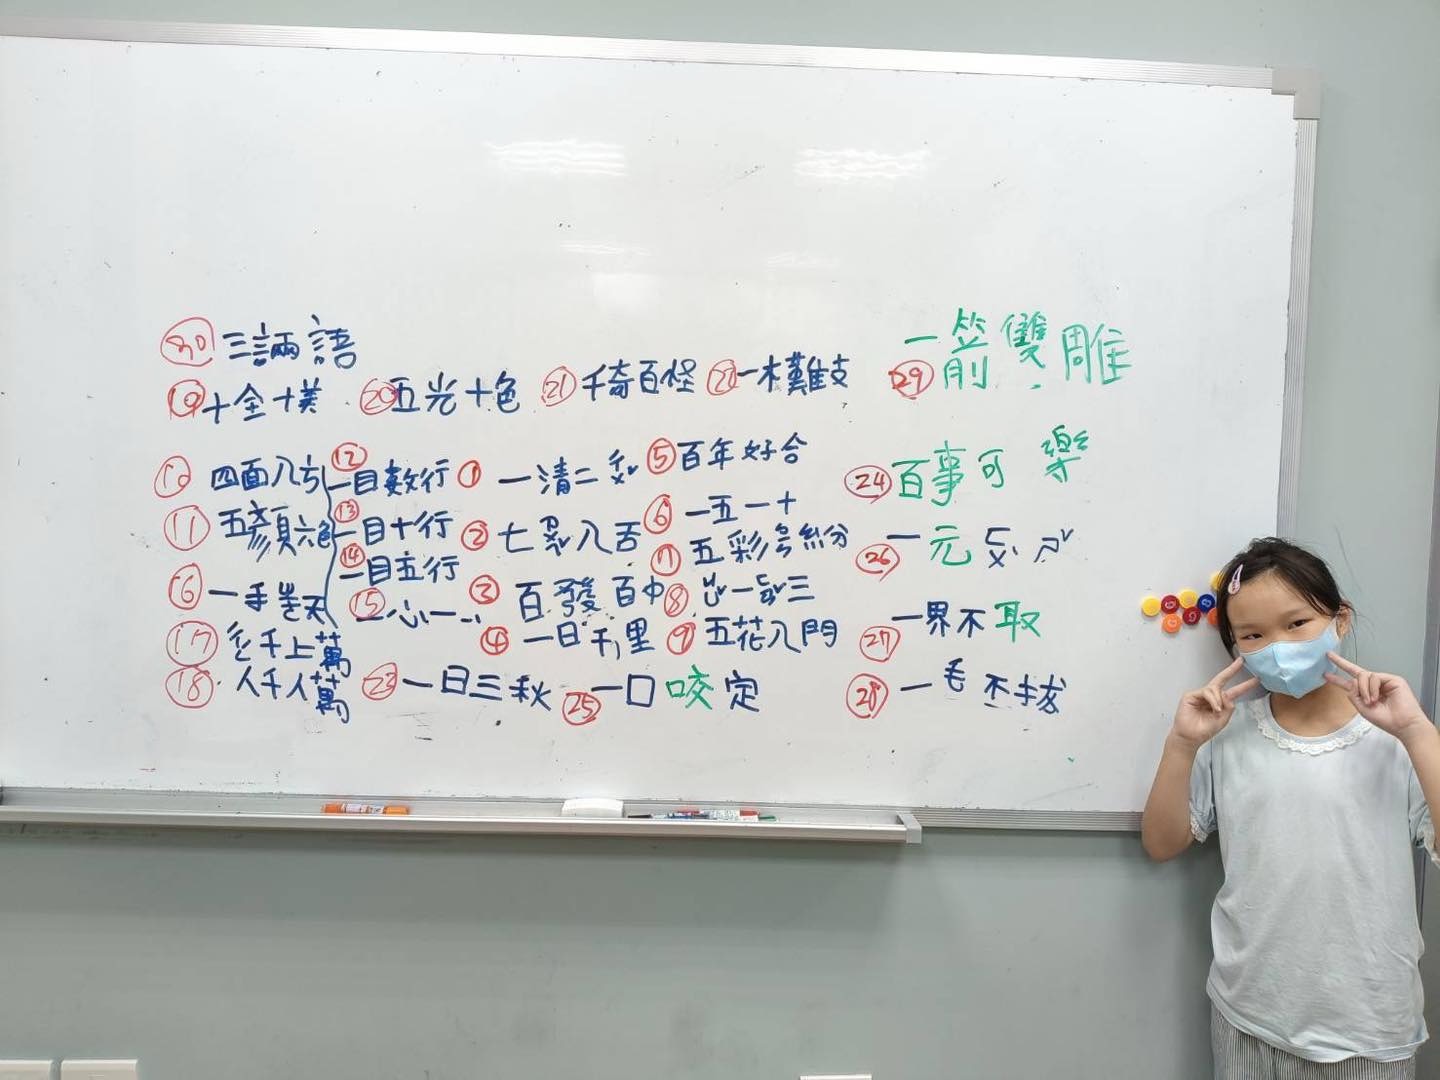 ㉚ 三誦語
⑲ 十全十美 ⑳ 五光十色 ㉑ 千奇百怪 ㉒ 一木難支
㉙ 一箭雙雕
⑩ 四面八方
⑪ 五顏六色
⑯ 一手
⑰ 千上萬
⑱ 人千人萬
⑫ 一目數行
⑬ 一目十行
⑭ 一目五行
⑮ 一心一
㉓ 一日三秋
① 一清二
② 七 八舌
③ 百發百中
④ 一日千里
㉕ 一口咬定
⑤ 百年好合
⑥ 一五一十
⑦ 五彩 紛
⑧ 一 三
⑨ 五花八門
㉔ 百事可樂
㉖ 一元
㉗ 一界不取
㉘ 一毛不拔